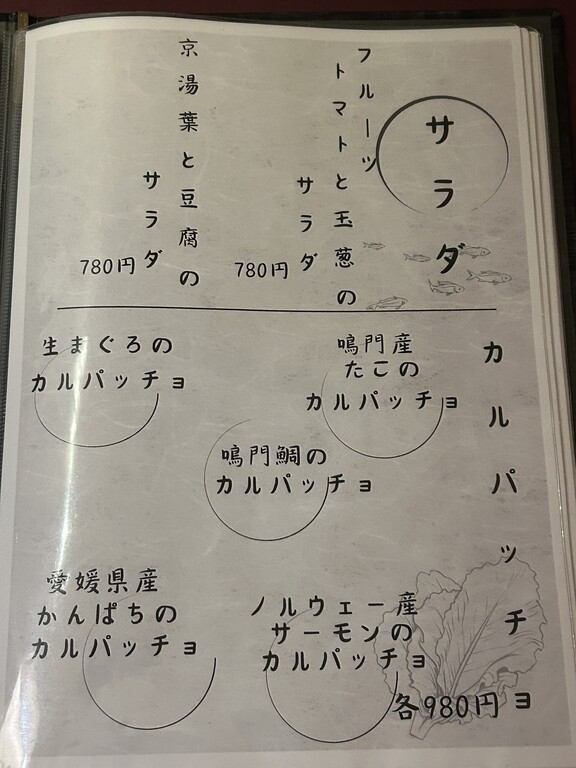 サラダ
フルーツ
トマトと玉葱の
サラダ
780円
京湯葉と豆腐の
サラダ
780円
カルパッチョ
鳴門産
たこの
カルパッチョ
生まぐろの
カルパッチョ
鳴門鯛の
カルパッチョ
ノルウェー産
サーモンの
カルパッチョ
愛媛県産
かんぱちの
カルパッチョ
各980円